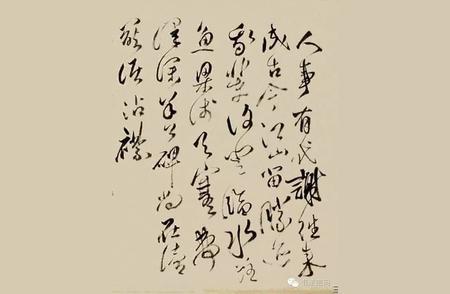 人事有代謝往来
成古今江山留勝迹
我輩復登臨水落
魚梁浅天寒夢
澤深羊公碑尚在讀
罷淚沾襟